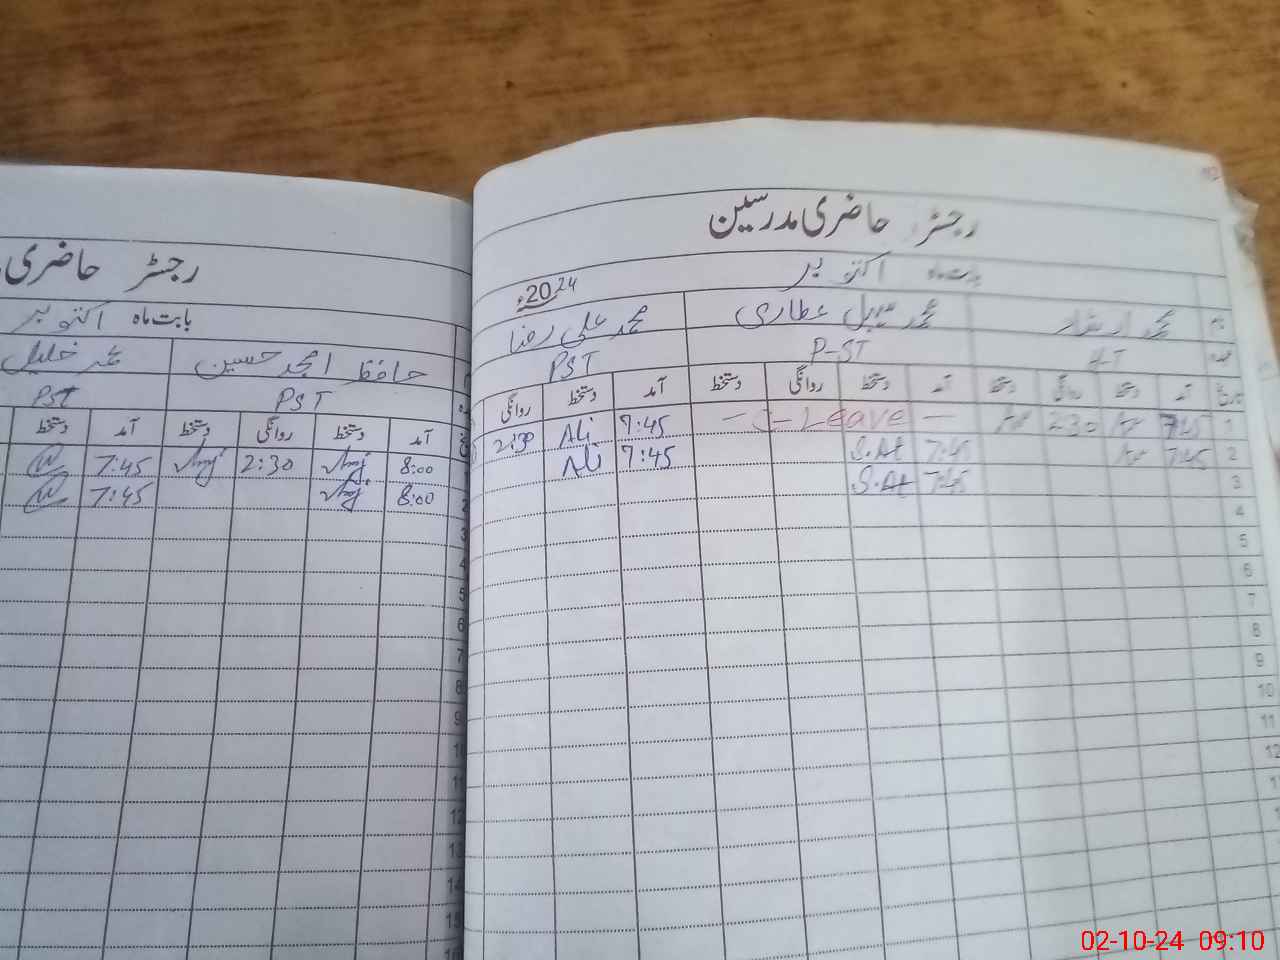 رجسٹر حاضری مدرسین
بابت ماہ اکتوبر 2024ء
نام محمد ارشد محمد سہیل عطاری محمد علی رضا
عہدہ P-ST PST
تاریخ آمد دستخط روانگی دستخط آمد دستخط روانگی دستخط آمد دستخط روانگی
1 7:45 2:30 - C-Leave - 7:45 Ali 2:30
2 7:45 7:45 S.At 7:45 Ali
3 7:45 S.At
4
5
6
7
8
9
10
11
12
رجسٹر حاضری
بابت ماہ اکتوبر
حافظ امجد حسین محمد خلیل
PST PST
آمد دستخط روانگی دستخط آمد دستخط
8:00 2:30 7:45
2 8:00 7:45
3
4
5
6
7
8
9
10
11
12
13
14
15
16
02-10-24 09:10